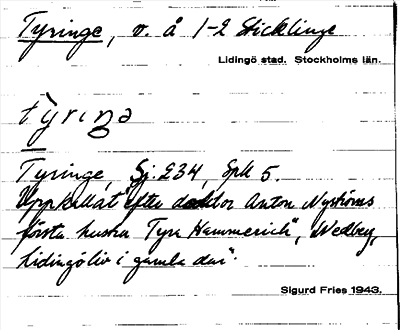 Tyringe, v. å 1-2 Sticklinge
Lidingö stad. Stockholms län.
tỳrıŋə
Tyringe, Sj. 234, Spk 5.
Uppkallat efter doktor Anton Nyströms
första hustru Tyra Hammerich", Nedberg,
Lidingöliv i gamla dar".
Sigurd Fries 1943.